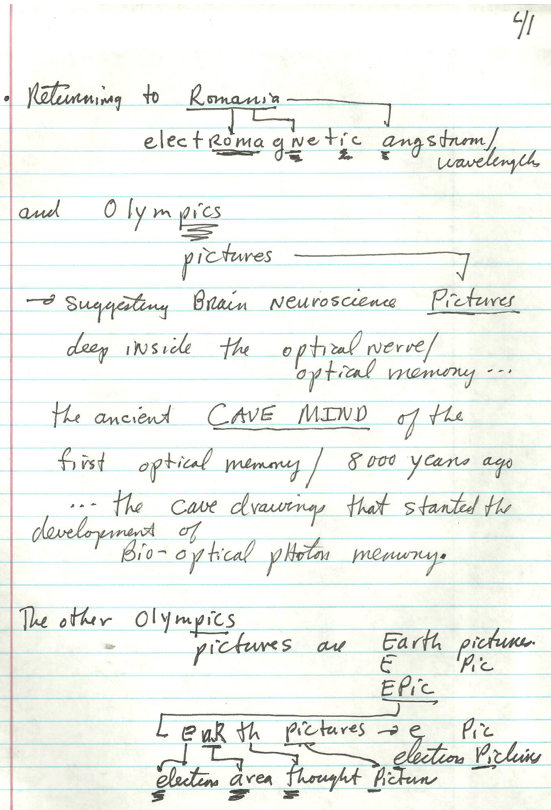 4/1
• Returning to Romania
electromagnetic angstrom/
wavelengths
and Olympics
pictures
→ Suggesting Brain Neuroscience Pictures
deep inside the optical nerve/
optical memory ...
the ancient CAVE MIND of the
first optical memory / 8000 years ago
... the cave drawings that started the
development of
Bio-optical pHoton memory.
The other Olympics
pictures are Earth pictures.
E Pic
EPic
earth pictures → e Pic
electron Pictures
electron area thought Picture